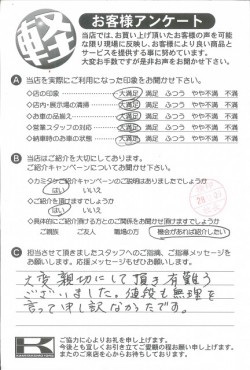 軽
お客様アンケート
当店では、お買い上げ頂いたお客様の声を可能
な限り現場に反映し、お客様により良い商品と
サービスを提供する事に努めています。
大変お手数ですが是非お声をお聞かせ下さい。
A 当店を実際にご利用になった印象をお聞かせ下さい。
◇店の印象 大満足 満足 ふつう やや不満 不満
◇店内・展示場の清掃 大満足 満足 ふつう やや不満 不満
◇お車の品揃え 大満足 満足 ふつう やや不満 不満
◇営業スタッフの対応 大満足 満足 ふつう やや不満 不満
◇納車時のお車の状態 大満足 満足 ふつう やや不満 不満
B 当店はご紹介を大切にしております。
ご紹介キャンペーンについてお聞かせ下さい。
◇カミタケご紹介キャンペーンのご説明はありましたでしょうか
はい いいえ
◇ご紹介を頂けますでしょうか
はい いいえ
◇具体的にご紹介頂ける方とのご関係をお聞かせ頂けますでしょうか
ご親族 ご友人 職場の方 機会があれば紹介したい
C 担当させて頂きましたスタッフへのご指摘、ご指導メッセージを
お願いします。応援メッセージもぜひお願いします。
大変親切にして頂き有難う
ございました。値段も無理を
言って申し訳なかったです。
K
ご協力に心よりお礼を申し上げます。
今後とも宜しくお引き立てご愛顧の程お願い申し上げます。
またのご来店を心からお待ちしております。